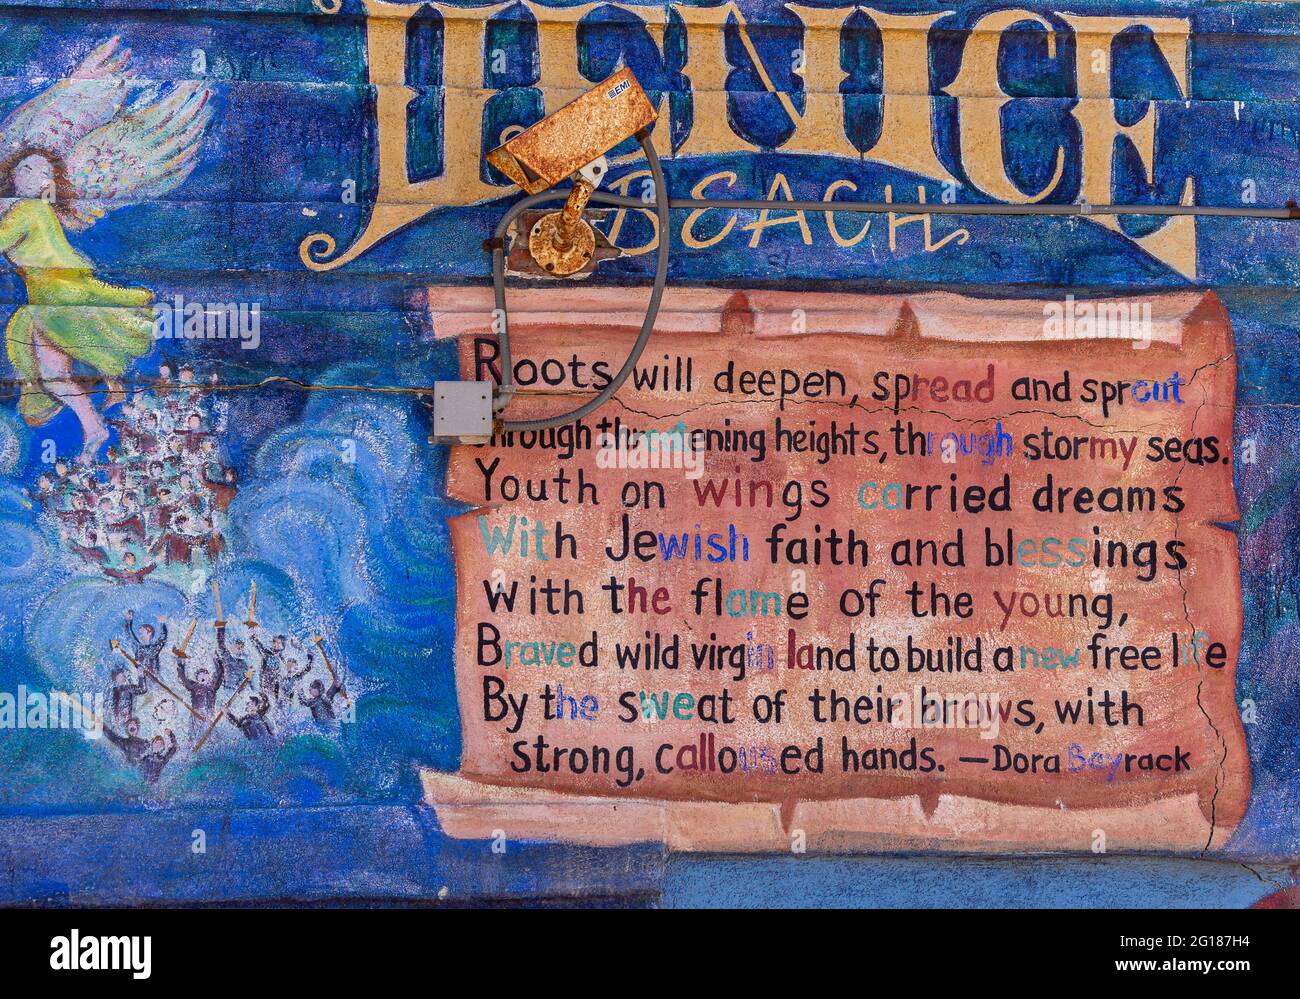 VENICE
EMI
BEACH
Roots will deepen, spread and sprout
through threatening heights, through stormy seas.
Youth on wings carried dreams
With Jewish faith and blessings
with the flame of the young,
Braved wild virgin land to build a new free life
By the sweat of their brows, with
strong, calloused hands. —Dora Bayrack
alamy
alamy
Image ID: 2G187H4
www.alamy.com